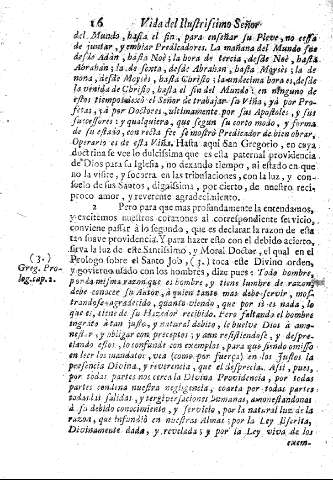 16 Vida del Ilustrissimo Señor
del Mundo, hasta el fin, para enseñar su Pleve, no cessa
de juntar, y embiar Predicadores. La mañana del Mundo fue
desde Adán, hasta Noè; la hora de tercia, desde Noè, hasta
Abrahán; la de sexta, desde Abrahán, hasta Moysès; la de
nona, desde Moysès, hasta Christo; la undecima hora es, desde
la venida de Christo, hasta el fin del Mundo: en ninguno de
estos tiempos dexò el Señor de trabajar su Viña, yà por Pro-
fetas, yà por Doctores, ultimamente por sus Apostoles, y sus
successores; y qualquiera, que segun su corto modo, y forma
de su estado, con recta fee se mostrò Predicador de bien obrar,
Operario es de esta Viña. Hasta aqui San Gregorio, en cuya
doctrina se vee lo dulcissima que es esta paternal providencia
de Dios para su Iglesia, no dexando tiempo, ni estado en que
no la visite, y socorra en las tribulaciones, con la luz, y con-
suelo de sus Santos, dignissima, por cierto, de nuestro reci-
proco amor, y reverente agradecimiento.
2 Pero para que mas profundamente la entendamos,
y excitemos nuestros corazones al correspondiente servicio,
conviene passar à lo segundo, que es declarar la razon de esta
tan suave providencia. Y para hazer esto con el debido acierto,
sirva la luz de este Santissimo, y Moral Doctor, el qual en el
Prologo sobre el Santo Job, (3.) toca este Divino orden,
(3.)
Greg. Pro-
log. cap. 2.
y govierno usado con los hombres, dize pues: Todo hombre,
por la misma razon que es hombre, y tiene lumbre de razon,
debe conocer su Autor, à quien tanto mas debe servir, mos-
trandose agradecido, quanto vee, que por sì es nada, lo
que es, tiene de su Hazedor recibido. Pero faltando el hombre
ingrato à tan justo, y natural debito, le buelve Dios à amo-
nestar, y obligar con preceptos; y aun resistiendose, y despre-
ciando estos, lo confunde con exemplos, para que siendo omisso
en leer los mandatos, vea (como por fuerça) en los Justos la
presencia Divina, y reverencia, que el desprecia. Assi, pues,
por todas partes nos cerca la Divina Providencia, por todas
partes condena nuestra negligencia, coarta por todas partes
todas las salidas, y tergiversaciones humanas, amonestandonos
à su debido conocimiento, y servicio, por la natural luz de la
razon, que infundiò en nuestras Almas; por la Ley Escrita,
Divinamente dada, y revelada; y por la Ley viva de los
exem-